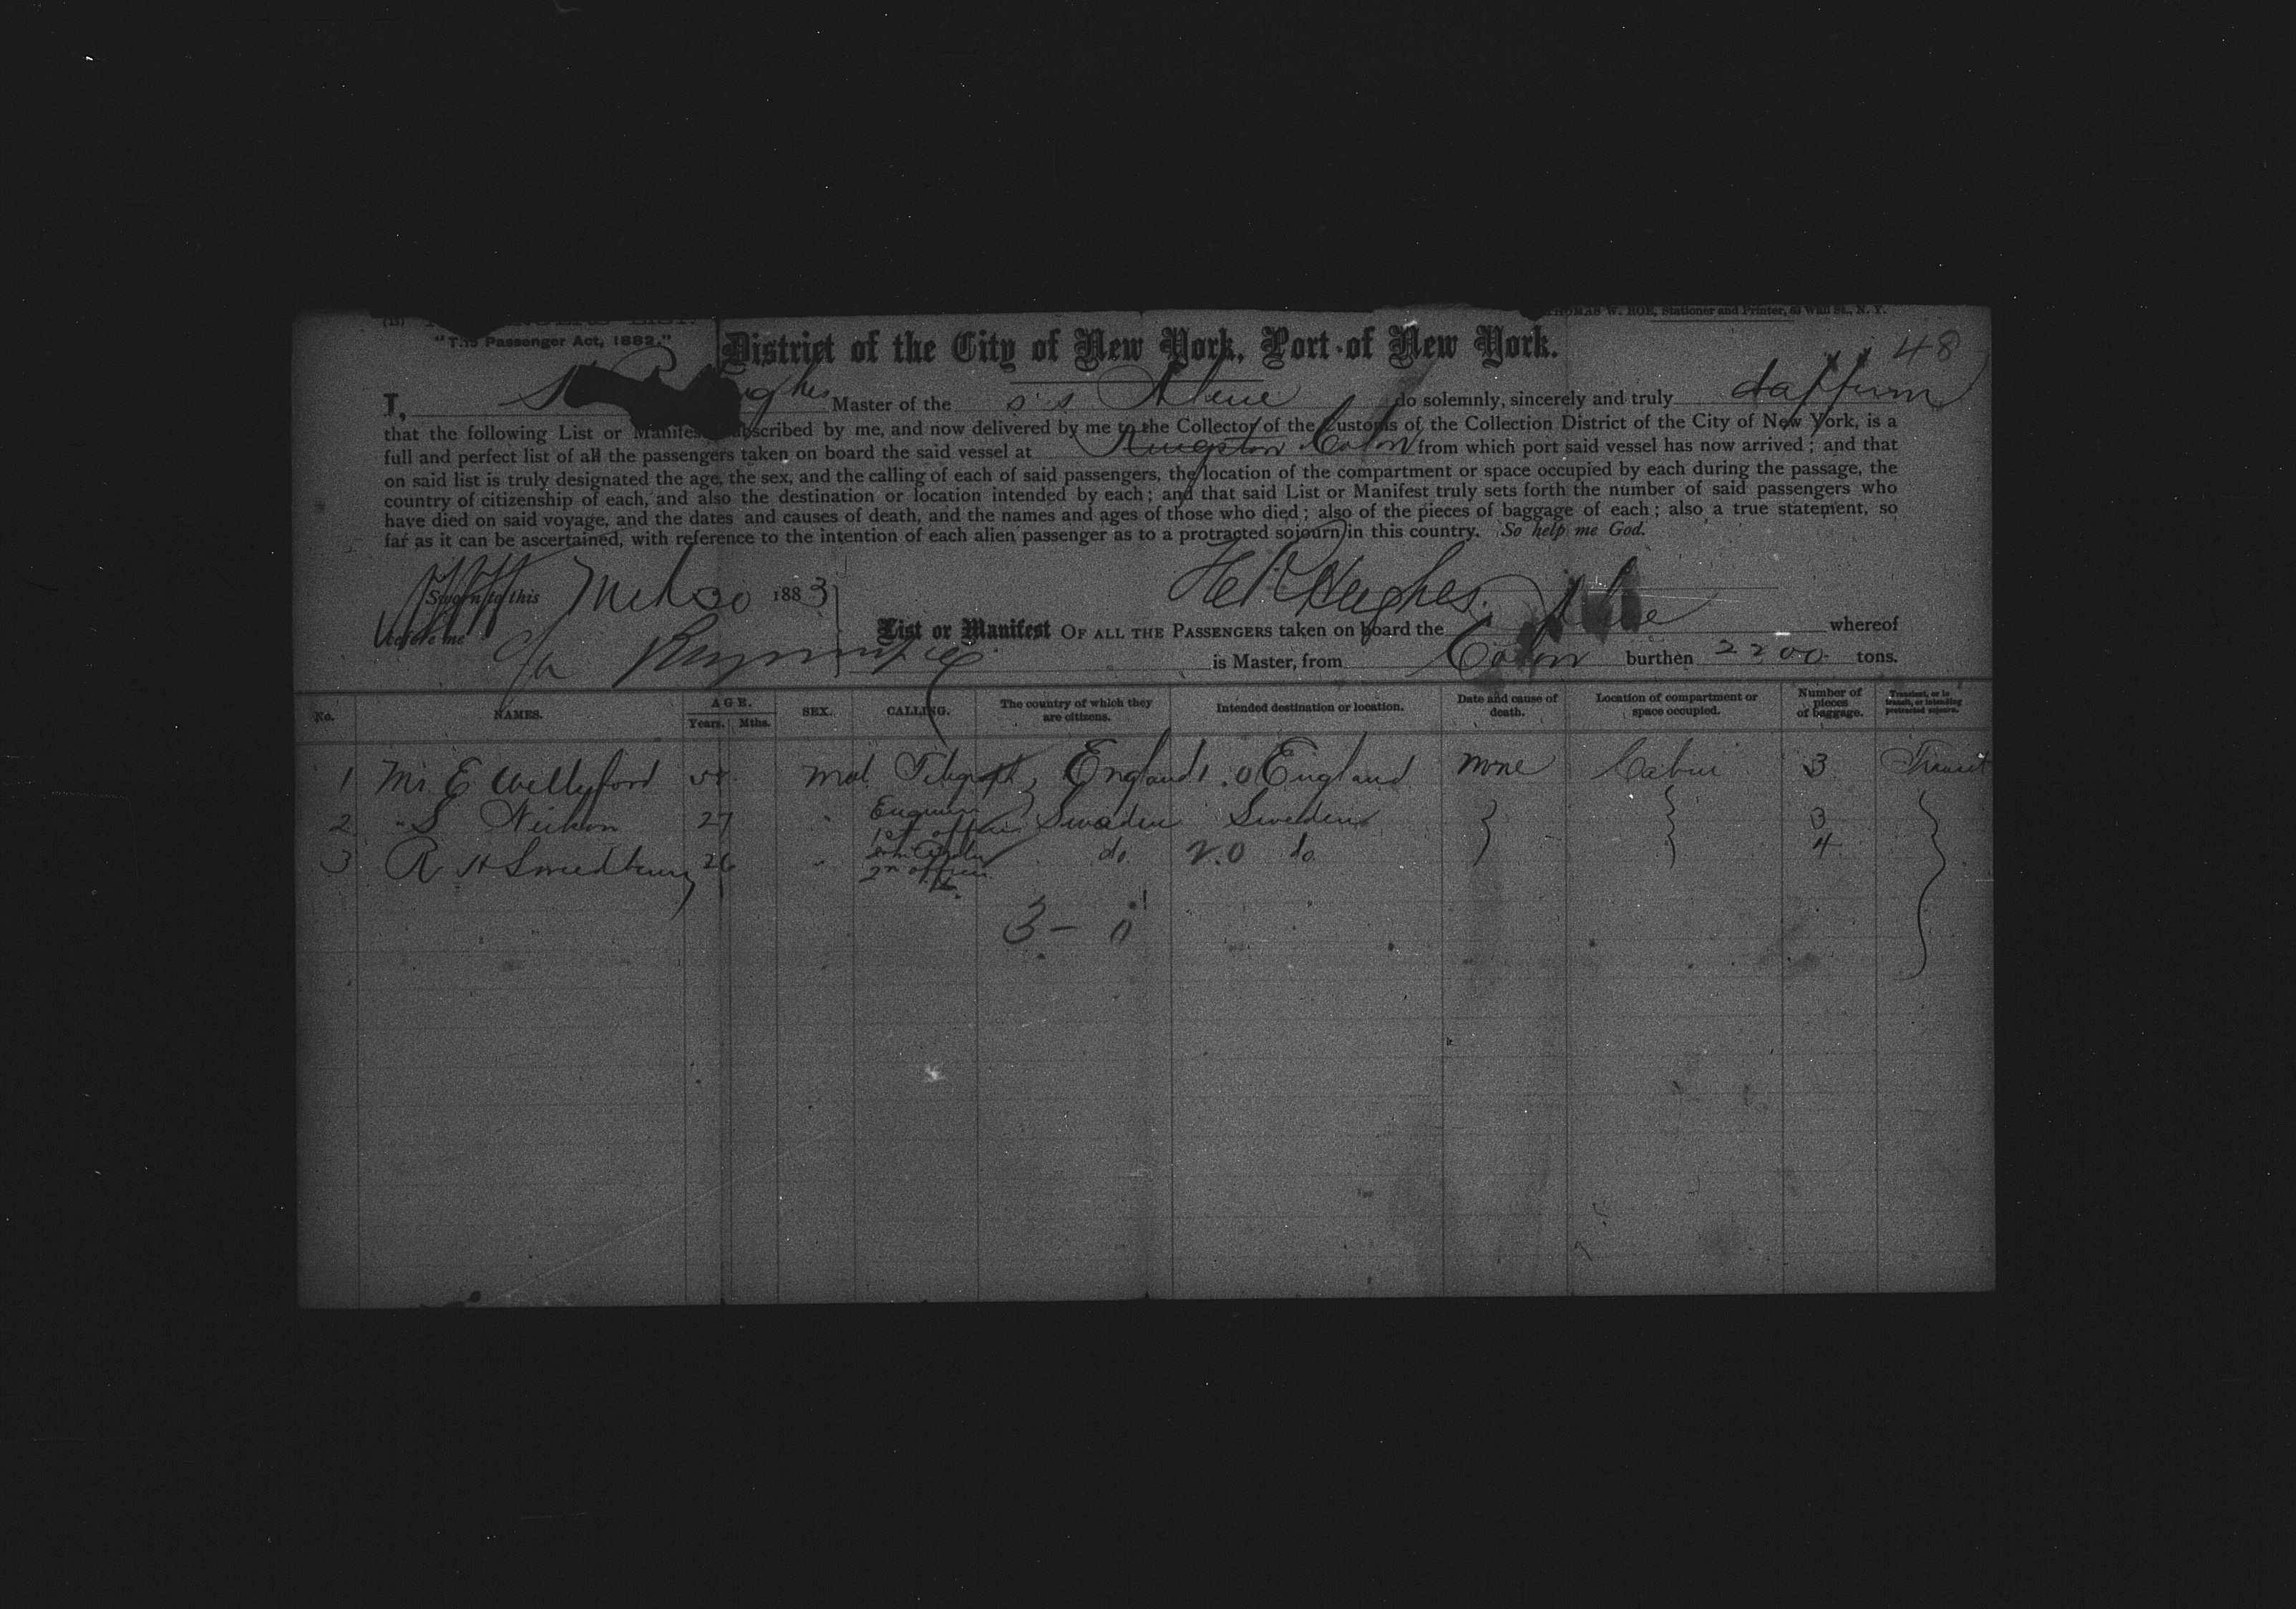 THOMAS W. ROE, Stationer and Printer, 69 Wall St., N. Y.
"The Passenger Act, 1882."
District of the City of New York, Port of New York.
48
I, Hughes Master of the S.S. Alene do solemnly, sincerely and truly
that the following List or Manifest subscribed by me, and now delivered by me to the Collector of the Customs of the Collection District of the City of New York, is a
full and perfect list of all the passengers taken on board the said vessel at Kingston Colon from which port said vessel has now arrived; and that
on said list is truly designated the age, the sex, and the calling of each of said passengers, the location of the compartment or space occupied by each during the passage, the
country of citizenship of each, and also the destination or location intended by each; and that said List or Manifest truly sets forth the number of said passengers who
have died on said voyage, and the dates and causes of death, and the names and ages of those who died; also of the pieces of baggage of each; also a true statement, so
far as it can be ascertained, with reference to the intention of each alien passenger as to a protracted sojourn in this country. So help me God.
Sworn to this Mch 20 1883
Hughes
before me
List or Manifest OF ALL THE PASSENGERS taken on board the Alene whereof
is Master, from Colon burthen 2200 tons.
No. NAMES. AGE. Years. Mths. SEX. CALLING. The country of which they are citizens. Intended destination or location. Date and cause of death. Location of compartment or space occupied. Number of pieces of baggage. Transient, or in transit, or intending protracted sojourn.
1 Mr E male Telegraph England England none Cabin 3 Transit
2 " S 27 " 1st officer Sweden Sweden 3
3 R H 26 " 2n officer do do 4
3 - 0